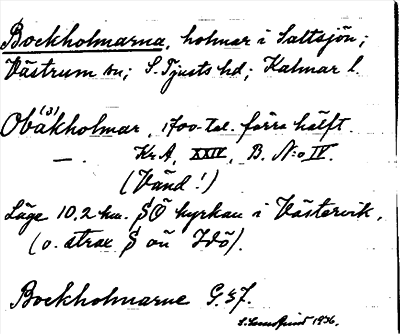 Bockholmarna, holmar i Saltsjön;
Västrum sn; S. Tjusts hd; Kalmar l.
Obakholmar, (3) 1700-tal. förra hälft.
— Kr.A, XXIV, B. N:o IV.
(Vänd!)
Läge 10,2 km. SÖ kyrkan i Västervik,
(o. strax S ön Idö).
Bockholmarne G. 57.
1936.